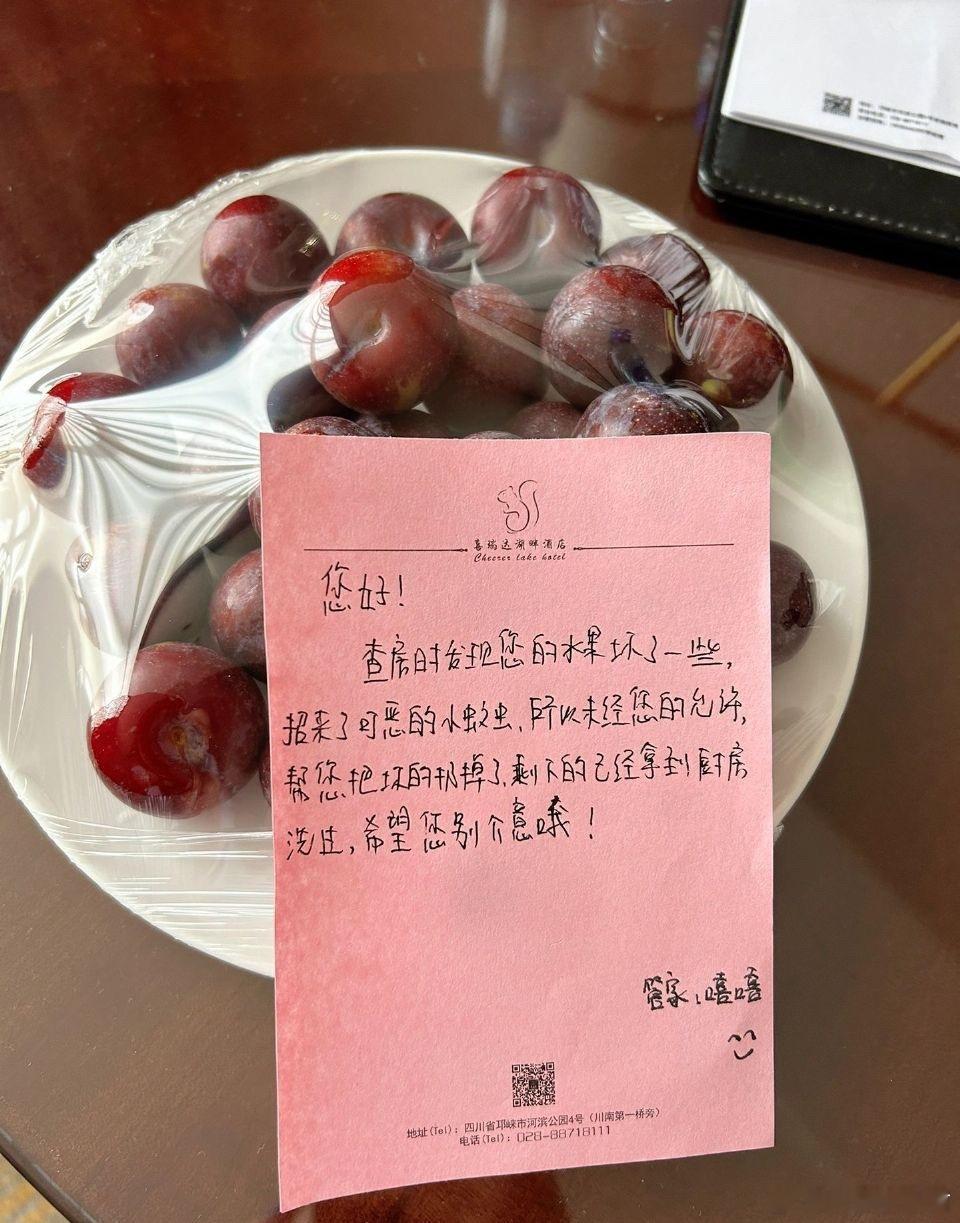 喜瑞达湖畔酒店
Cheerer lake hotel
您好！
查房时发现您的水果坏了一些，
招来了可恶的小蚊虫，所以未经您的允许，
帮您把坏的扔掉了，剩下的已经拿到厨房
洗过，希望您别介意哦！
管家：嘻嘻
地址(Tel)：四川省邛崃市河滨公园4号（川南第一桥旁）
电话(Tel)：028-88718111